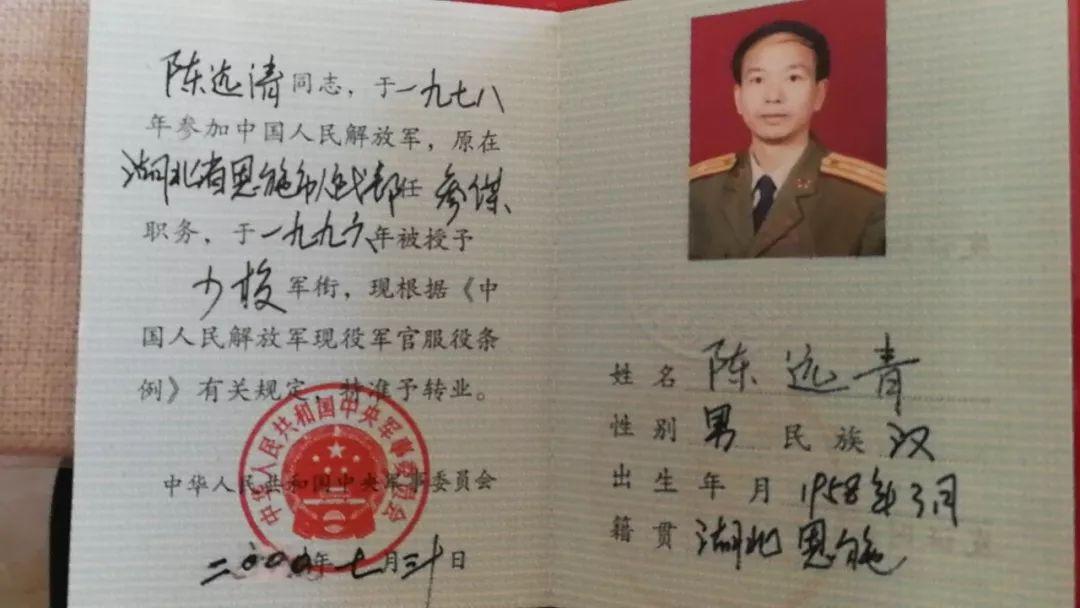 陈远清同志，于一九七八
年参加中国人民解放军，原在
湖北省恩施市人武部任参谋
职务，于一九九六年被授予
少校军衔，现根据《中
国人民解放军现役军官服役条
例》有关规定，特准予转业。
中华人民共和国中央军事委员会
中华人民共和国中央军事委员会
二〇〇〇年七月三十日
姓名 陈远青
性别 男 民族 汉
出生年月 1958年3月
籍贯 湖北恩施